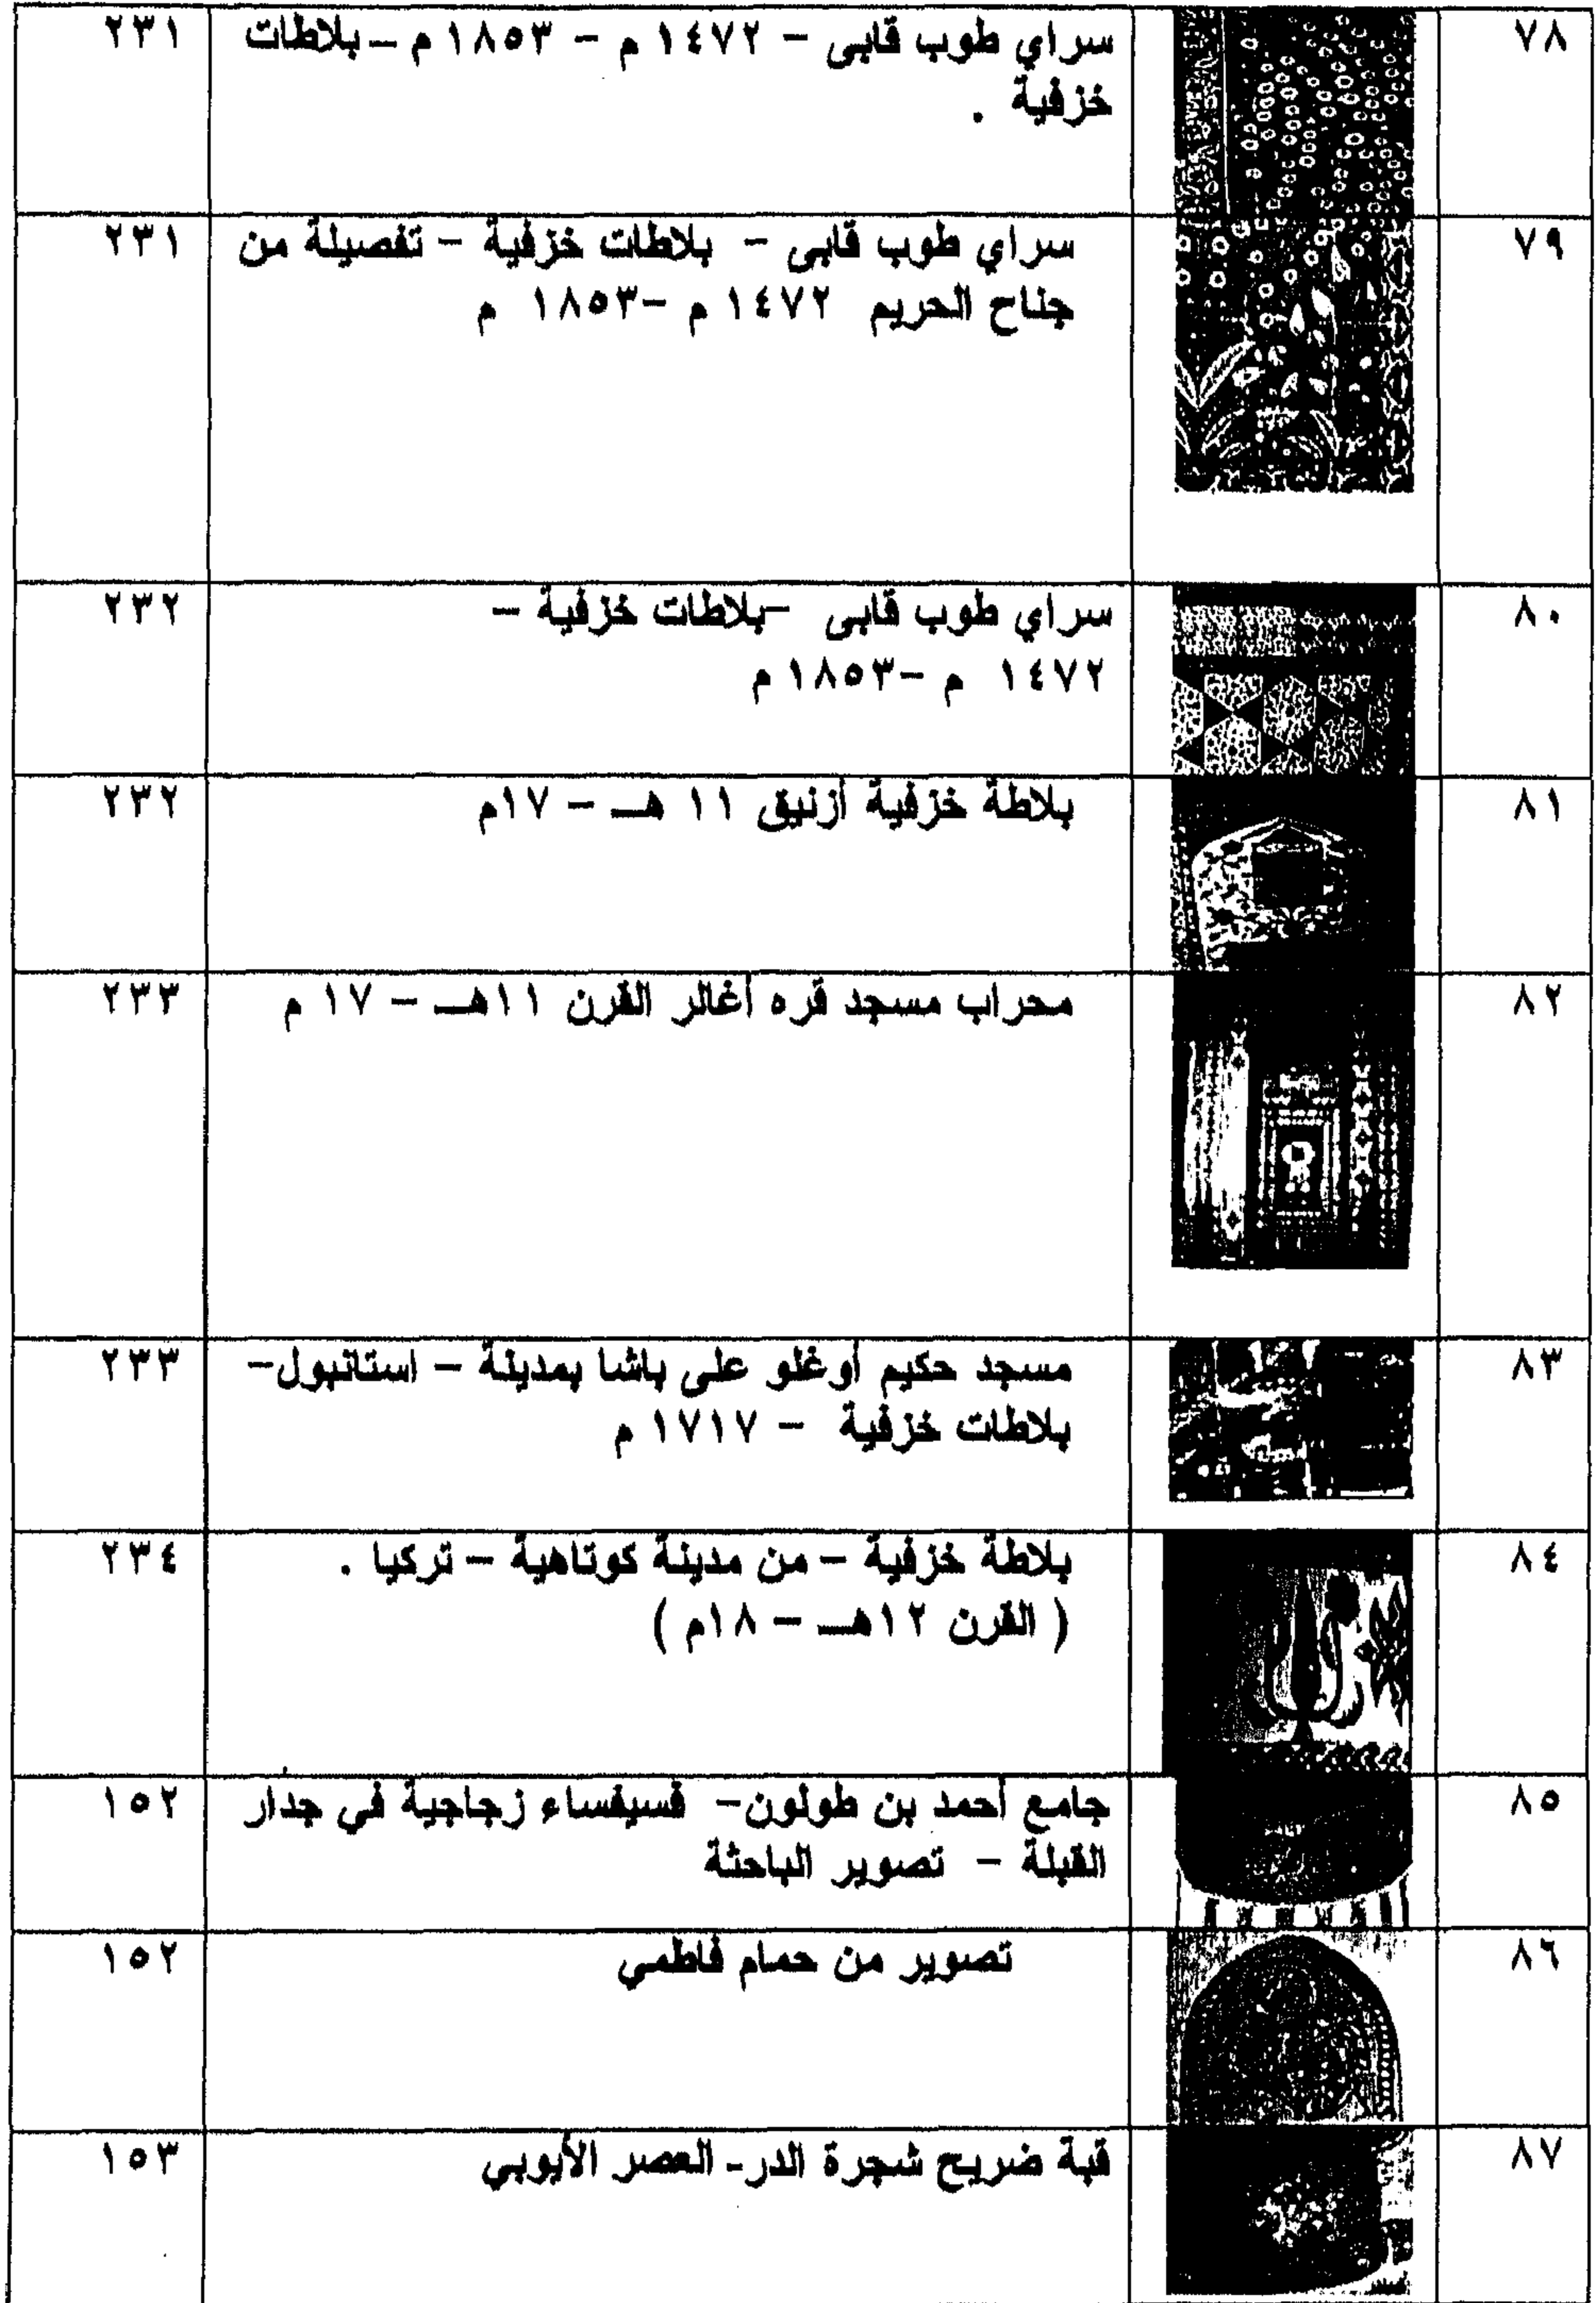 ٧٨ سراي طوب قابى – ١٤٧٢ م – ١٨٥٣ م – بلاطات ٢٣١
خزفية .
٧٩ سراي طوب قابى – بلاطات خزفية – تفصيلة من ٢٣١
جناح الحريم ١٤٧٢ م –١٨٥٣ م
٨٠ سراي طوب قابى –بلاطات خزفية – ٢٣٢
١٤٧٢ م –١٨٥٣ م
٨١ بلاطة خزفية أزنيق ١١ هـ – ١٧م ٢٣٢
٨٢ محراب مسجد قره أغالر القرن ١١هـ – ١٧ م ٢٣٣
٨٣ مسجد حكيم أوغلو على باشا بمدينة – استانبول– ٢٣٣
بلاطات خزفية – ١٧١٧ م
٨٤ بلاطة خزفية – من مدينة كوتاهية – تركيا . ٢٣٤
( القرن ١٢هـ – ١٨م )
٨٥ جامع أحمد بن طولون– فسيفساء زجاجية في جدار ١٥٢
القبلة – تصوير الباحثة
٨٦ تصوير من حمام فاطمي ١٥٢
٨٧ قبة ضريح شجرة الدر- العصر الأيوبي ١٥٣